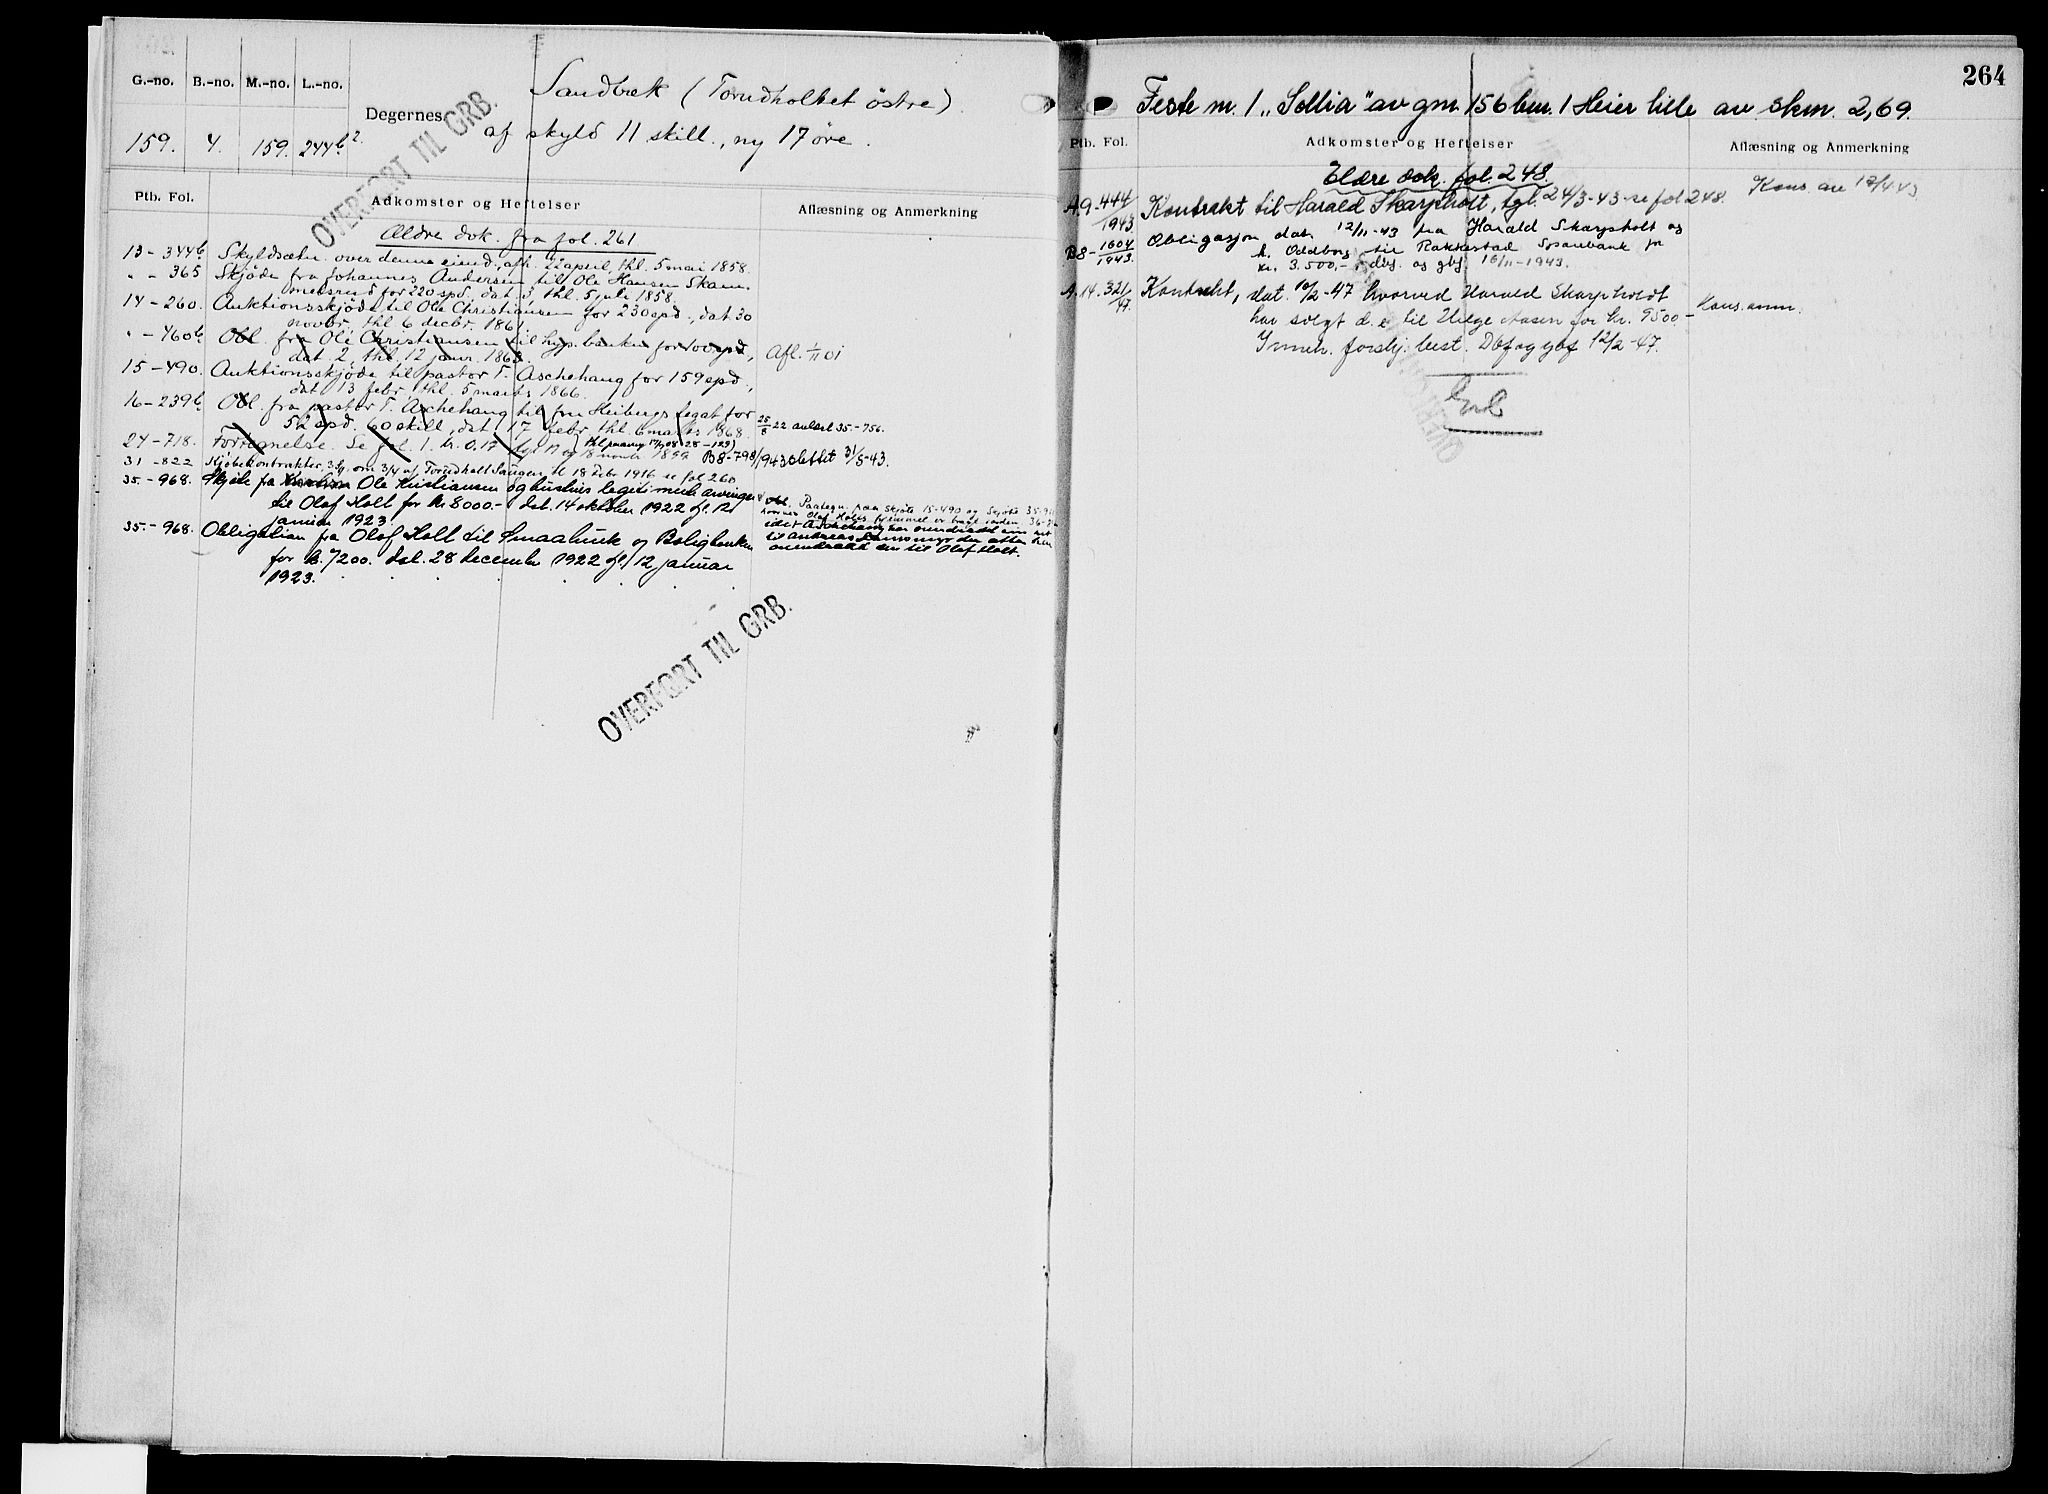 G.-no. B.-no. M.-no. L.-no.
159. 4. 159. 244b2.
Degernes.
Sandbæk (Torudholtet østre).
af skyld 11 skill., ny 17 øre.
OVERFØRT TIL GRB.
Ptb. Fol. Adkomster og Heftelser Aflæsning og Anmerkning
Ældre dok. fra fol. 261
13 - 344b Skyldsætn. over denne eiend., afh. 22 april, thl. 5 mai 1858.
" - 365 Skjøde fra Johannes Andersen til Ole Hansen Skam-
melsrud for 220 spd, dat. 3, thl. 5 juli 1858.
14 - 260. Auktionsskjøde til Ole Christiansen for 230 spd., dat 30
novbr., thl. 6 decbr. 1861.
" - 460b Obl. fra Ole Christiansen til hyp. banken for 100 spd,
dat. 2, thl. 12 janr. 1863. Afl. 1/11 01
15 - 490. Auktionsskjøde til pastor T. Aschehaug for 159 spd.,
dat 13 febr., thl. 5 marts 1866.
16 - 239b Obl. fra pastor T. Aschehaug til fru Heibergs legat for
52 spd. 60 skill, dat 17 febr. thl. 6 marts 1868. 25/8 22 avlæst 35-756.
24 - 718. Fortegnelse. Se fol. 1. kr. 0.17 B8-798/1943 slettet 31/5-43.
31 - 822 Kjøbekontrakter, 3 stk, om 3/4 af Torudholt Saugen, tl 18 Febr 1916 se fol 260
35. - 968. Skjøte fra Ole Kristiansen og hustrus legitimerte arvinger
til Olaf Holt for kr 8000.- dat. 14 oktober 1922 gl. 12
januar 1923.
35. - 968. Obligation fra Olaf Holt til Smaabruk og Boligbanken
for kr. 7200. dat. 28 december 1922 gl. 12 januar
1923.
Paategn. paa skjøte 15-490 og skjøte 35-968
hvorved Olaf Holts hjemmel er bragt i orden
idet Aschehaug har overdradd sin ret
til Andreas
overdradd den til Olaf Holt.
OVERFØRT TIL GRB.
264
Feste nr. 1 "Sollia" av gnr. 156 bnr. 1 Heier lille av skm. 2,69.
Ptb. Fol. Adkomster og Heftelser Aflæsning og Anmerkning
Eldre dok. fol. 248.
A.9-444/1943 Kontrakt til Harald Skarpholt, tgl. 24/3-43-se fol 248. Kons. 12/4 43
B8-1604/1943. Obligasjon dat. 12/11-43 fra Harald Skarpsholt og
h. Oddborg til Rakkestad Sparebank for
kr. 3.500,- dbf. og gbf. 16/11-1943.
A.14.321/47. Kontrakt, dat. 10/2-47 hvorved Harald Skarpholdt
har solgt d. e. til Helge Aasen for kr. 9500.- Kons. anm.
Inneh. forskj. best. Dbf og gbf 12/2-47.
Grb